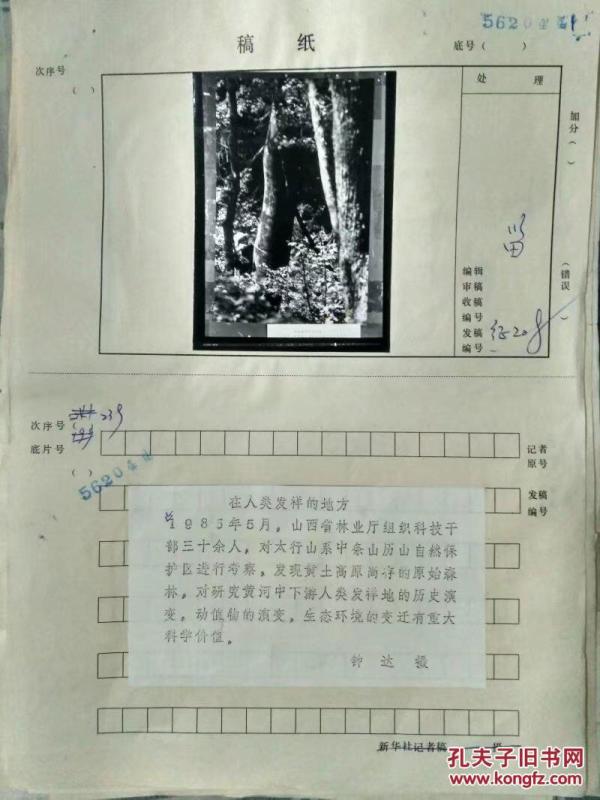 稿 纸
底号( )
次序号
( )
处 理
加分( )
(错误 )
留
编辑
审稿
收稿
编号
发稿
编号
征208
次序号
239
底片号
( )
记者
原号
发稿
编号
在人类发祥的地方
1983年5月，山西省林业厅组织科技干
部三十余人，对太行山系中条山历山自然保
护区进行考察，发现黄土高原尚存的原始森
林，对研究黄河中下游人类发祥地的历史演
变，动植物的演变，生态环境的变迁有重大
科学价值。
钟 达 摄
新华社记者稿
孔夫子旧书网
www.kongfz.com